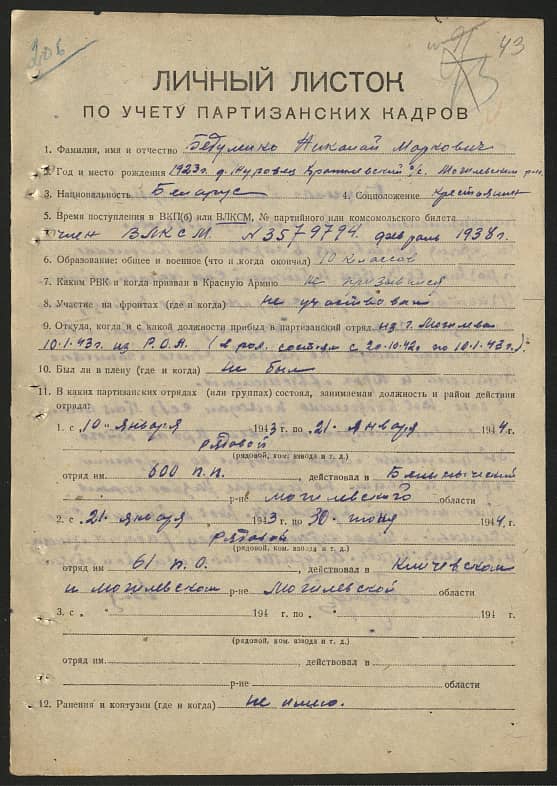 206
43
ЛИЧНЫЙ ЛИСТОК
ПО УЧЕТУ ПАРТИЗАНСКИХ КАДРОВ
1. Фамилия, имя и отчество Николай Маркович
2. Год и место рождения 1923 г. д. с/с. Могилевский р-н.
3. Национальность Беларус 4. Соцположение крестьянин
5. Время поступления в ВКП(б) или ВЛКСМ, № партийного или комсомольского билета
член ВЛКСМ №3579794 февраль 1938 г.
6. Образование: общее и военное (что и когда окончил) 10 классов
7. Каким РВК и когда призван в Красную Армию не призывался
8. Участие на фронтах (где и когда) не участвовал
9. Откуда, когда и с какой должности прибыл в партизанский отряд из г. Могилева
10.1.43 г. из Р.О.А. (в рол. состоял с 20.10.42 г. по 10.1.43 г.).
10. Был ли в плену (где и когда) не был
11. В каких партизанских отрядах (или группах) состоял, занимаемая должность и район действия
отряда:
1. с 10 января 1943 г. по 21 января 1944 г.
рядовой
(рядовой, ком. взвода и т. д.)
отряд им. 600 п.п. , действовал в Белыничский
р-не могилевского области
2. с 21 января 1943 г. по 30 июня 1944 г.
рядовой
(рядовой, ком. взвода и т. д.)
отряд им. 61 п.о. , действовал в Кличевском
и могилевском р-не Могилевской области
3. с 194 г. по 194 г.
(рядовой, ком. взвода и т. д.)
отряд им. , действовал в
р-не области
12. Ранения и контузии (где и когда) не имею.